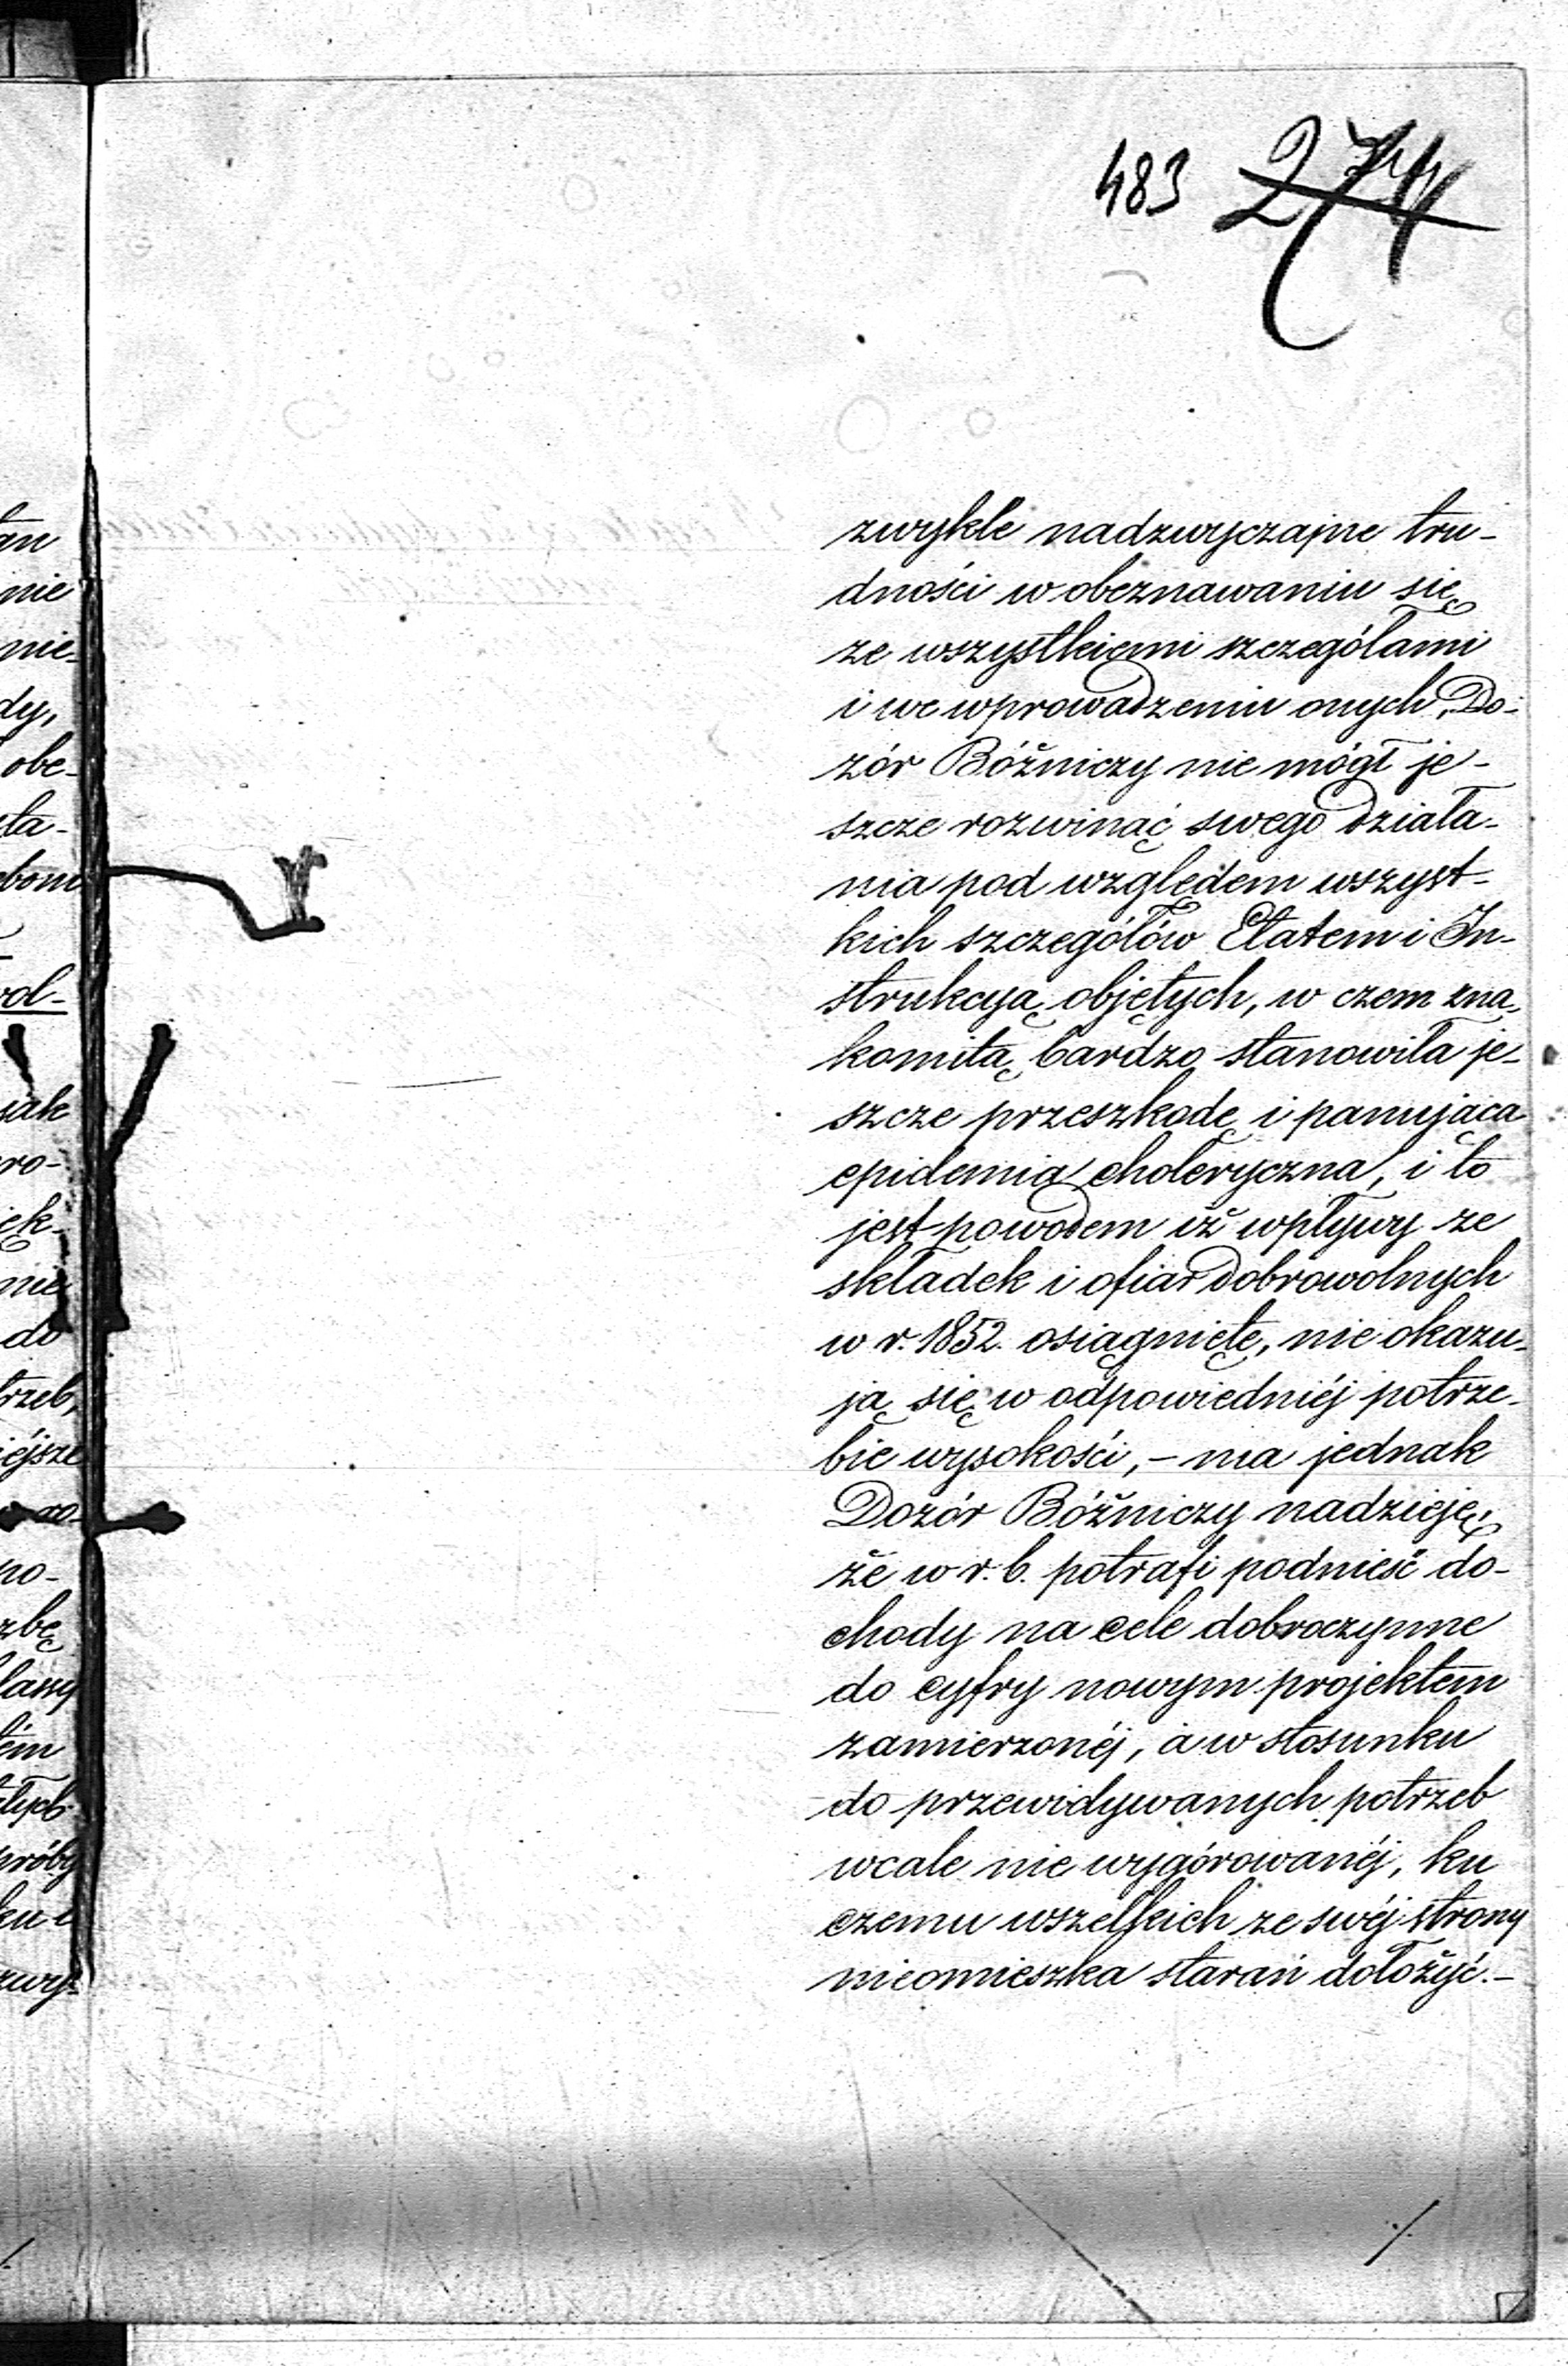 483 274
zwykle nadzwyczajne tru-
dności w obeznawaniu się
ze wszystkiemi szczegółami
i we wprowadzeniu onych, Do-
zór Bóżniczy nie mógł je-
szcze rozwinąć swego działa-
nia pod względem wszyst-
kich szczegółów Etatem i In-
strukcyą objętych, w czem zna-
komitą bardzo stanowiła je-
szcze przeszkodę i panująca
epidemia choleryczna, i to
jest powodem iż wpływy ze
składek i ofiar dobrowolnych
w r. 1852. osiągnięte, nie okazu-
ją się w odpowiedniéj potrze-
bie wysokości, – ma jednak
Dozór Bóżniczy nadzieję,
że w r. b. potrafi podnieść do-
chody na cele dobroczynne
do cyfry nowym projektem
zamierzonéj, a w stosunku
do przewidywanych potrzeb
wcale nie wygórowanéj, ku
czemu wszelkich ze swéj strony
nieomieszka starań dołożyć. –